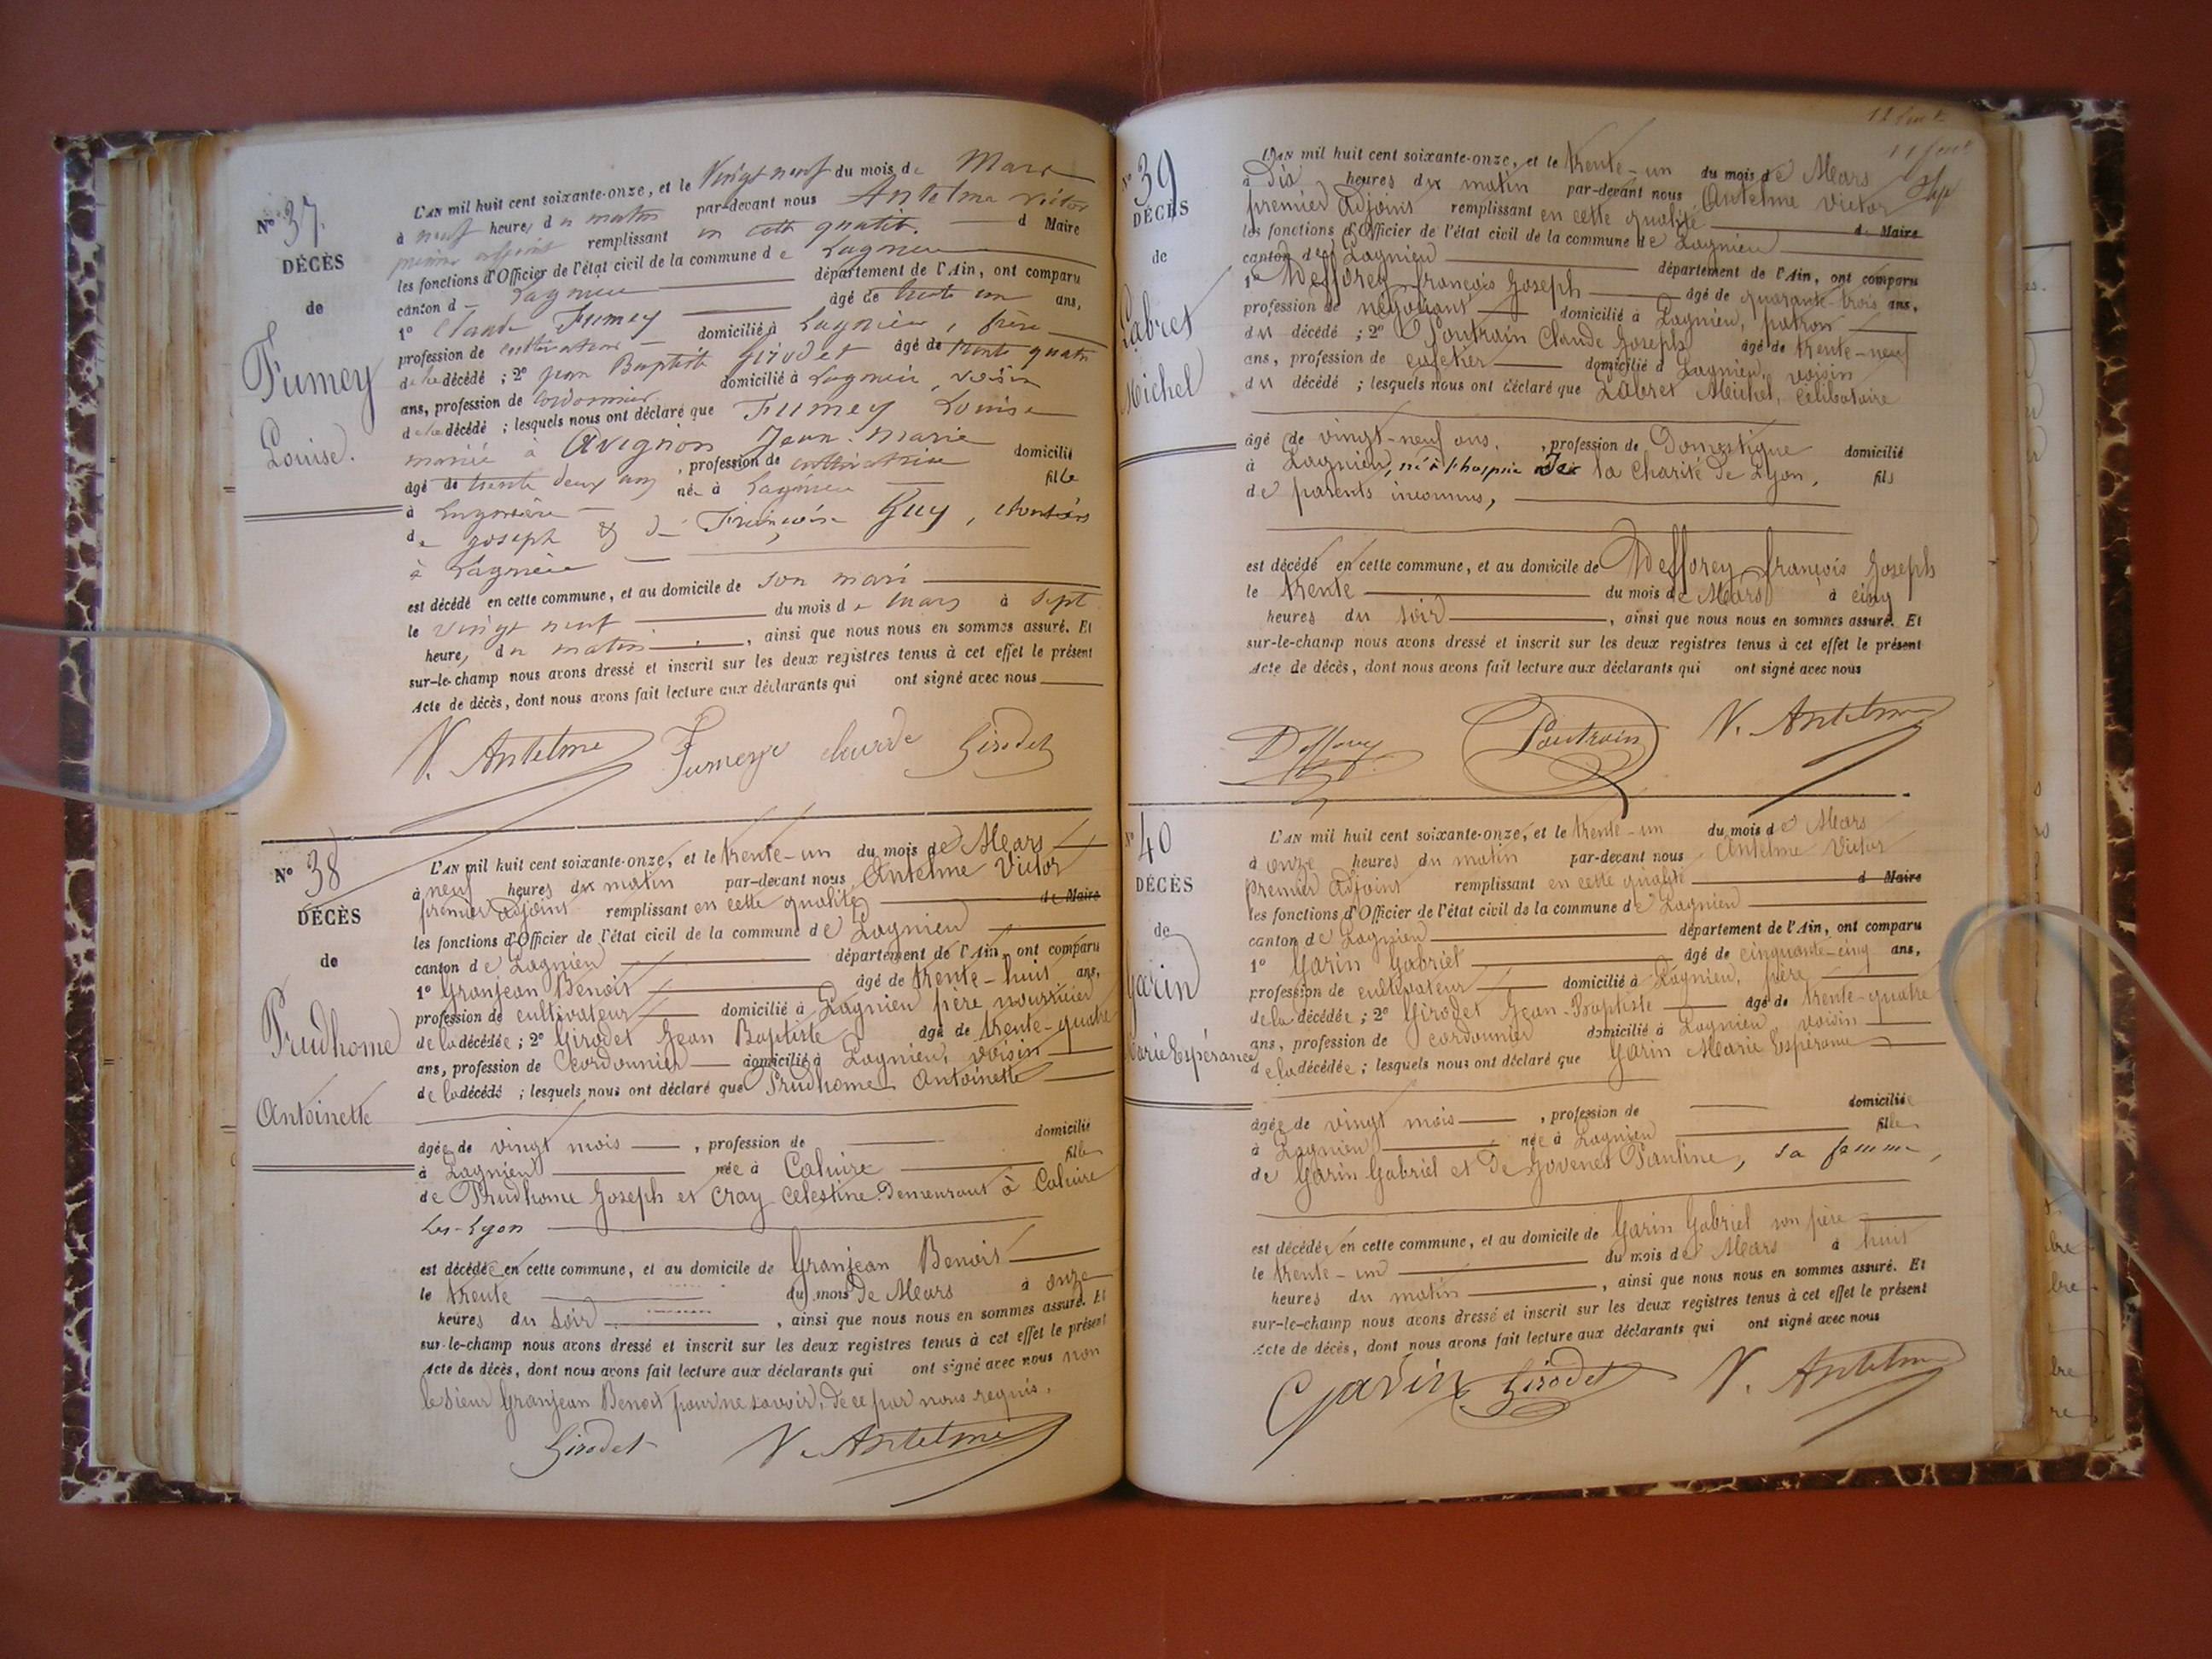 N° 37.
DÉCÈS
de
Fumey
Louise.
L'AN mil huit cent soixante-onze, et le Vingt neuf du mois de Mars
à neuf heures du matin par-devant nous Antelme Victor
premier adjoint remplissant en cette qualité d Maire
les fonctions d'Officier de l'état civil de la commune de Lagnieu
canton de Lagnieu département de l'Ain, ont comparu
1° Claude Fumey âgé de trente un ans,
profession de cultivateur domicilié à Lagnieu, frère
de la décédé ; 2° jean Baptiste Girodet âgé de trente quatre
ans, profession de Cordonnier domicilié à Lagnieu, voisin
de la décédé ; lesquels nous ont déclaré que Fumey Louise
mariée à Avignon Jean-Marie
âgé de trente deux ans, profession de cultivatrice domicilié
à Lagnieu née à Lagnieu fille
de joseph & de Françoise Guy,
à Lagnieu
est décédé en cette commune, et au domicile de son mari
le vingt neuf du mois de mars à sept
heure, du matin, ainsi que nous nous en sommes assuré. Et
sur-le-champ nous avons dressé et inscrit sur les deux registres tenus à cet effet le présent
Acte de décès, dont nous avons fait lecture aux déclarants qui ont signé avec nous
V. Antelme Fumey claude Girodet
N° 38
DÉCÈS
de
Prudhome
Antoinette
L'AN mil huit cent soixante-onze, et le trente-un du mois de Mars
à neuf heures du matin par-devant nous Antelme Victor
premier adjoint remplissant en cette qualité de Maire
les fonctions d'Officier de l'état civil de la commune de Lagnieu
canton de Lagnieu département de l'Ain, ont comparu
1° Granjean Benoit âgé de trente-huit ans,
profession de cultivateur domicilié à Lagnieu père nourricier
de la décédée ; 2° Girodet Jean Baptiste âgé de trente-quatre
ans, profession de Cordonnier domicilié à Lagnieu, voisin
de la décédé ; lesquels nous ont déclaré que Prudhome Antoinette
âgée de vingt mois, profession de domicilié
à Lagnieu née à Caluire fille
de Prudhome Joseph et Cray Celestine Demeurant à Caluire
Les-Lyon
est décédée en cette commune, et au domicile de Granjean Benoit
le trente du mois de Mars à onze
heures du soir, ainsi que nous nous en sommes assuré. Et
sur-le-champ nous avons dressé et inscrit sur les deux registres tenus à cet effet le présent
Acte de décès, dont nous avons fait lecture aux déclarants qui ont signé avec nous non
le sieur Granjean Benoit pour ne savoir, de ce par nous requis.
Girodet V. Antelme
N° 39
DÉCÈS
de
Labret
Michel
L'AN mil huit cent soixante-onze, et le trente-un du mois de Mars
à Dix heures du matin par-devant nous Antelme Victor
premier Adjoint remplissant en cette qualité de Maire
les fonctions d'Officier de l'état civil de la commune de Lagnieu
canton de Lagnieu département de l'Ain, ont comparu
1° Defforey françois Joseph âgé de quarante-trois ans,
profession de négociant domicilié à Lagnieu, patron
du décédé ; 2° Poutrain Claude Joseph âgé de trente-neuf
ans, profession de cafetier domicilié à Lagnieu, voisin
du décédé ; lesquels nous ont déclaré que Labret Michel, celibataire
âgé de vingt-neuf ans, profession de Domestique domicilié
à Lagnieu, né à l'hospice de la Charité de Lyon, fils
de parents inconnus,
est décédé en cette commune, et au domicile de Defforey françois Joseph
le trente du mois de Mars à cinq
heures du soir, ainsi que nous nous en sommes assuré. Et
sur-le-champ nous avons dressé et inscrit sur les deux registres tenus à cet effet le présent
Acte de décès, dont nous avons fait lecture aux déclarants qui ont signé avec nous
Poutrain V. Antelme
N° 40
DÉCÈS
de
Garin
Marie Espérance
L'AN mil huit cent soixante-onze, et le trente-un du mois de Mars
à onze heures du matin par-devant nous Antelme Victor
premier Adjoint remplissant en cette qualité d Maire
les fonctions d'Officier de l'état civil de la commune de Lagnieu
canton de Lagnieu département de l'Ain, ont comparu
1° Garin Gabriel âgé de cinquante-cinq ans,
profession de cultivateur domicilié à Lagnieu, père
de la décédée ; 2° Girodet Jean-Baptiste âgé de trente-quatre
ans, profession de cordonnier domicilié à Lagnieu, voisin
de la décédée ; lesquels nous ont déclaré que Garin Marie Espérance
âgée de vingt mois, profession de domiciliée
à Lagnieu, née à Lagnieu fille
de Garin Gabriel et de Govenet Pantine, sa femme,
est décédée en cette commune, et au domicile de Garin Gabriel son père
le trente-un du mois de Mars à huit
heures du matin, ainsi que nous nous en sommes assuré. Et
sur-le-champ nous avons dressé et inscrit sur les deux registres tenus à cet effet le présent
Acte de décès, dont nous avons fait lecture aux déclarants qui ont signé avec nous
Garin Girodet V. Antelme